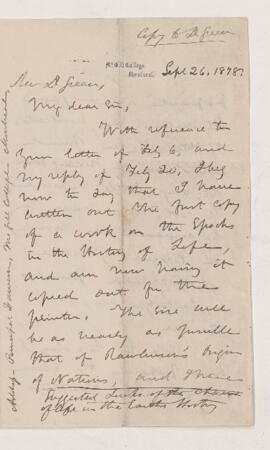 Copy to Dr Green
McGill College
Montreal
Sept 26, 1878
Rev Dr Green,
My dear Sir,
With reference to
your letter of Feby 6, and
my reply of Feby 20, I beg
now to say that I have
written out the first copy
of a work on the Epochs
in the History of Life,
and am now having it
copied out for the
printer. The size will
be as nearly as possible
that of Rawlinson's Origin
of Nations, and I have
suggested Links of the Chain
of Life in the Earth's History
McGill College Montreal